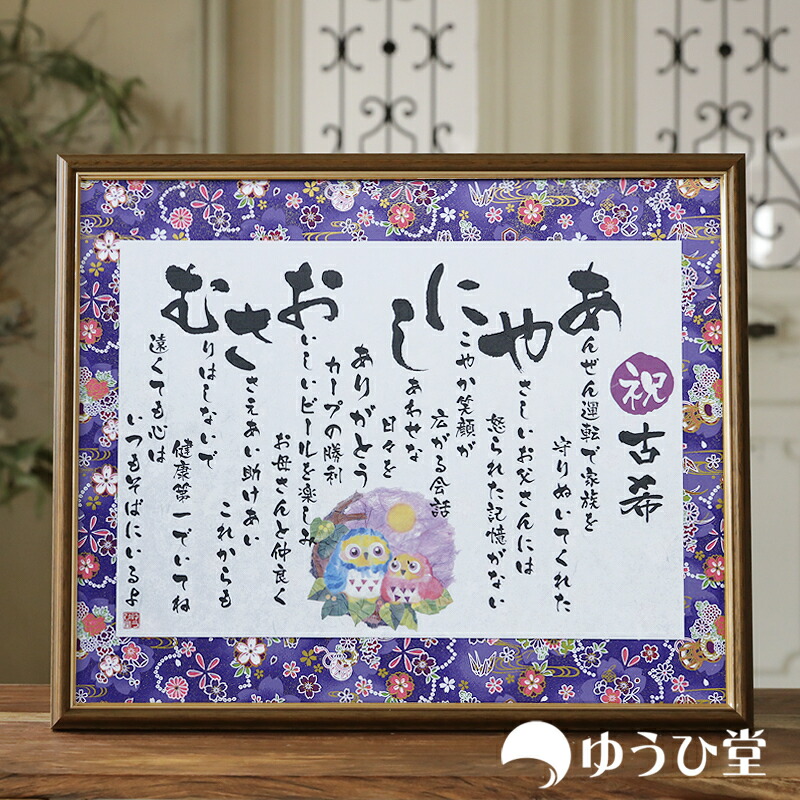 祝
古希
あんぜん運転で家族を
守りぬいてくれた
やさしいお父さんには
怒られた記憶がない
にこやか笑顔が
広がる会話
しあわせな
日々を
ありがとう
カープの勝利
おいしいビールを楽しみ
お母さんと仲良く
ささえあい助けあい
これからも
むりはしないで
健康第一でいてね
遠くても心は
いつもそばにいるよ
ゆうひ堂